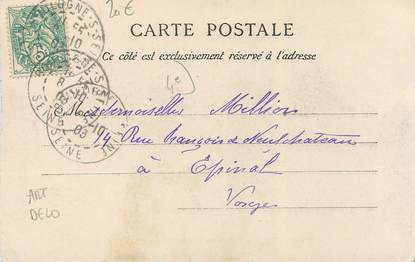 20€
CARTE POSTALE
Ce côté est exclusivement réservé à l'adresse
4e
Mesdemoiselles Million
14 Rue François de Neufchateau
à Épinal
Vosges
ART
DECO
BOULOGNE-S-SEINE
SEINE